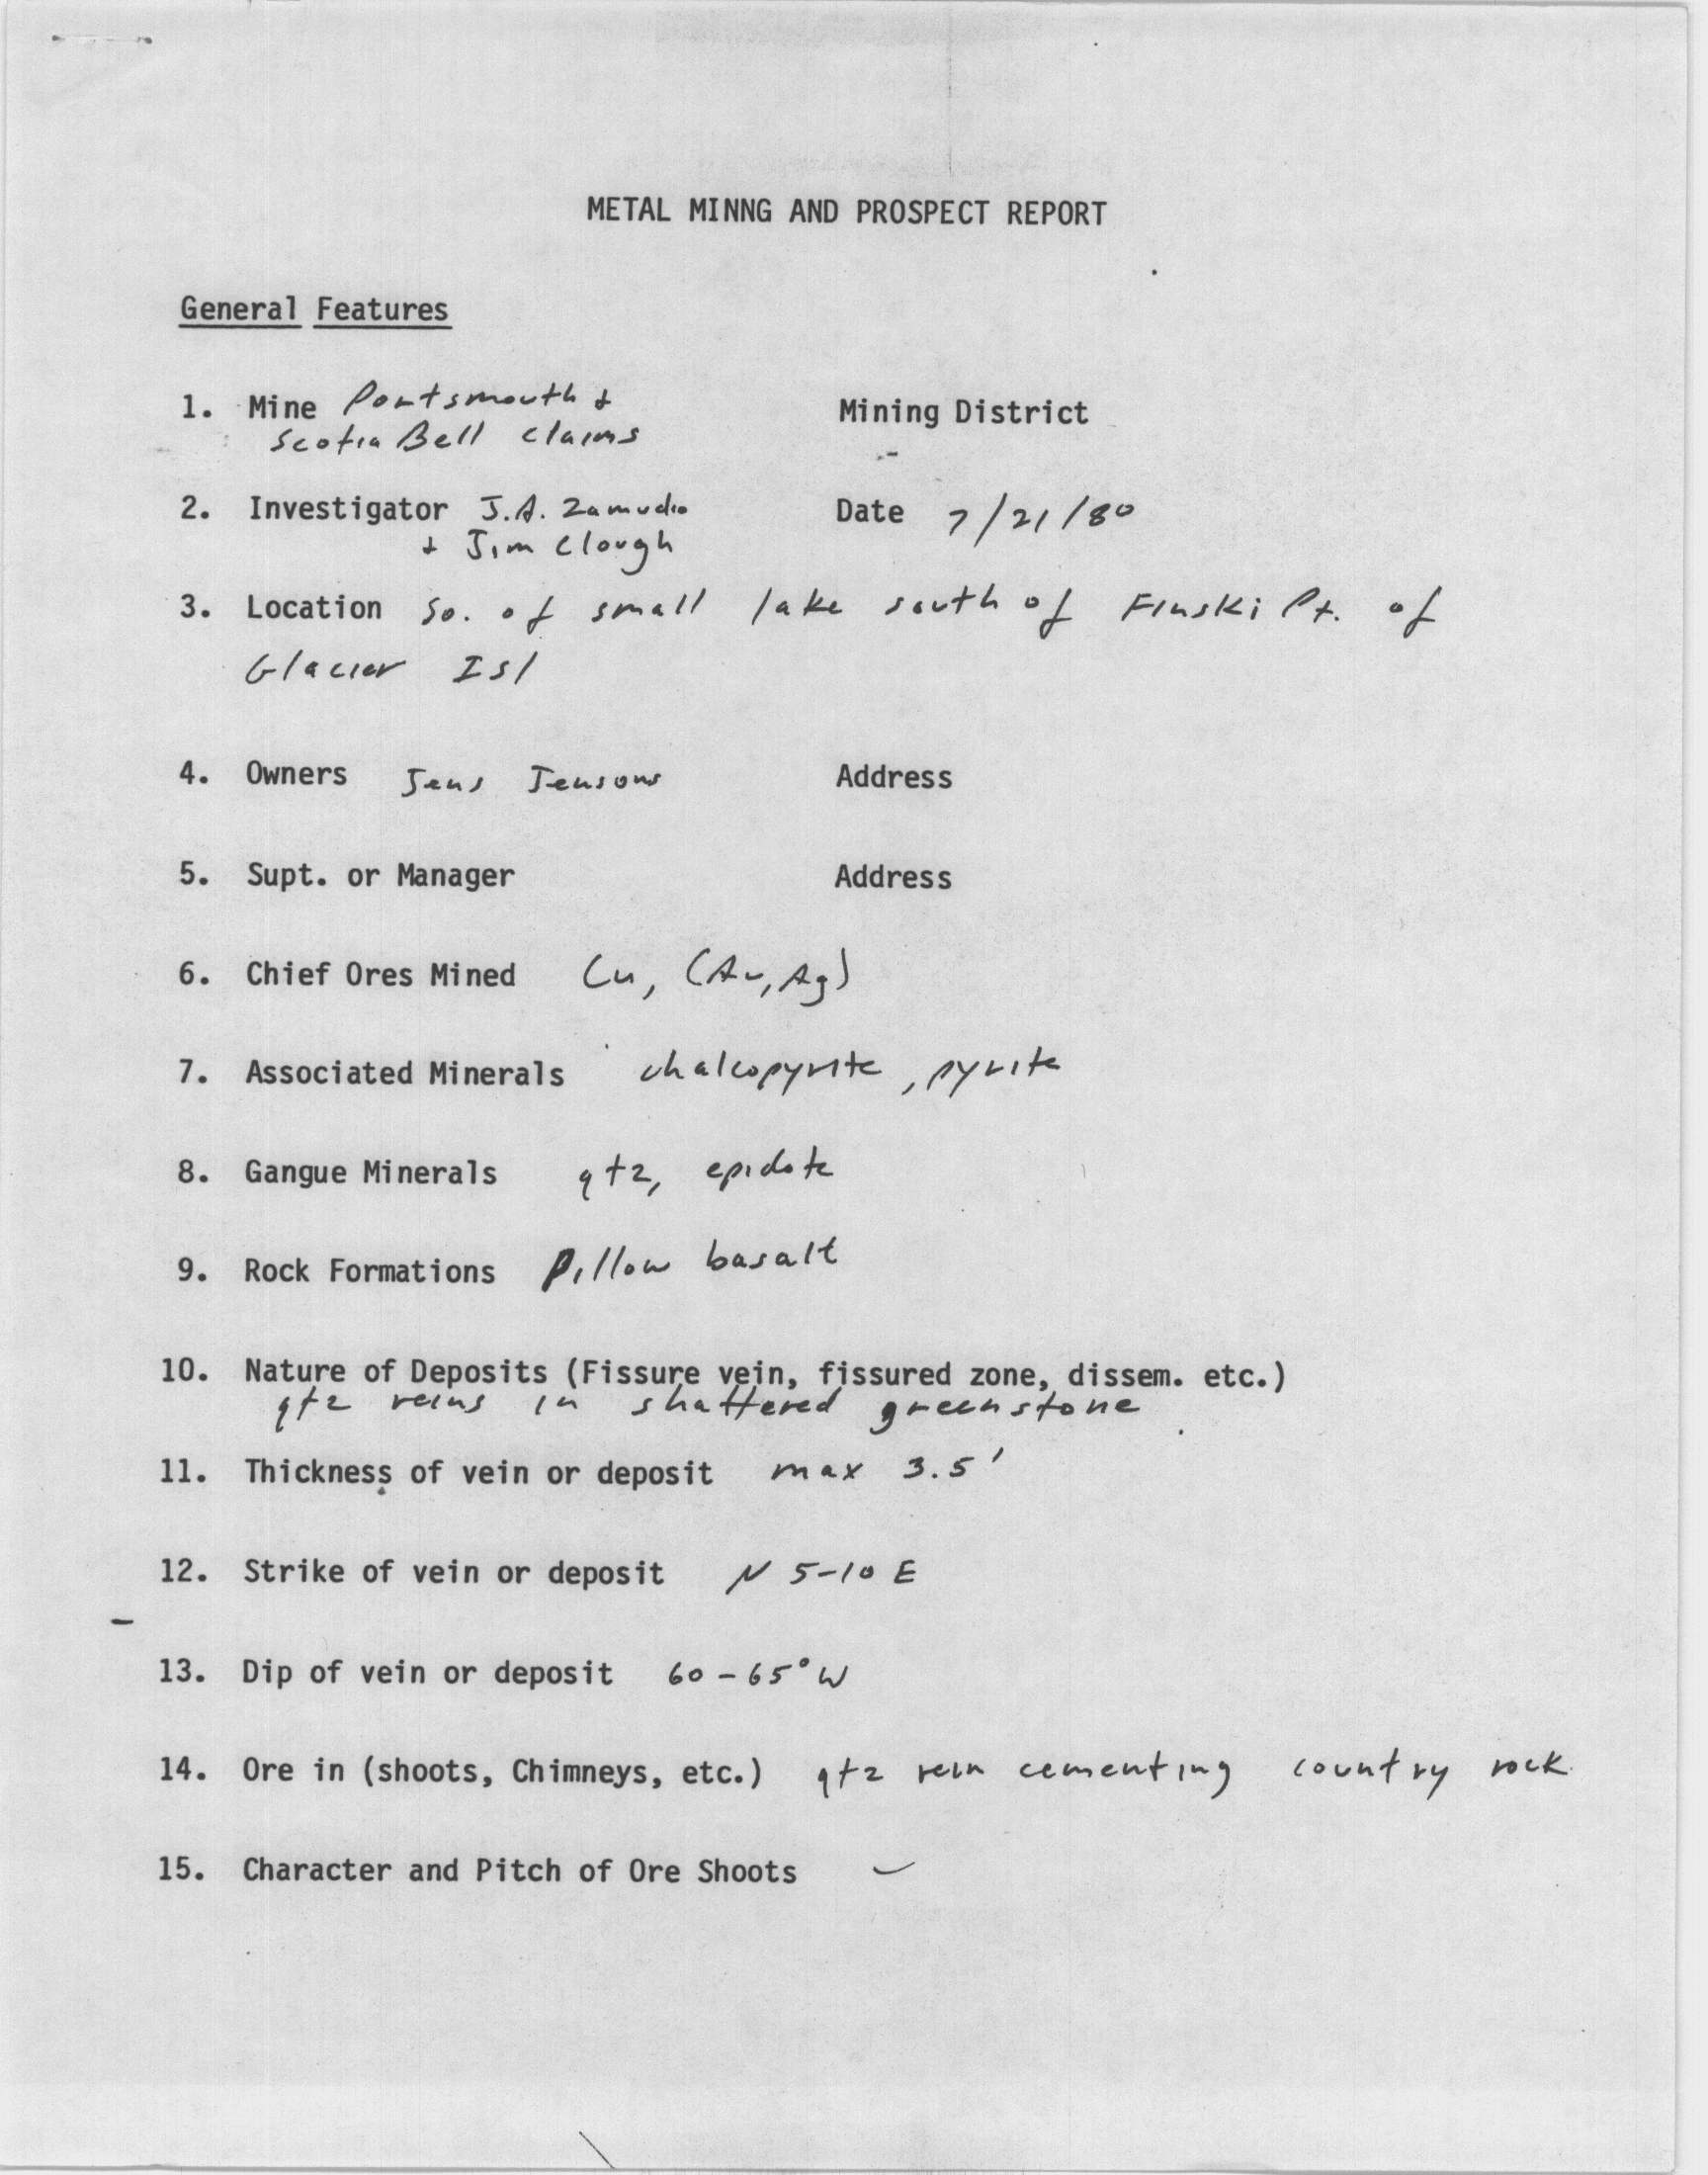 METAL MINNG AND PROSPECT REPORT
General Features
1. Mine Portsmouth + Mining District
Scotia Bell claims
2. Investigator J.A. Zamudio Date 7/21/80
+ Jim Clough
3. Location So. of small lake south of Finski Pt. of
Glacier Isl
4. Owners Jens Jensons Address
5. Supt. or Manager Address
6. Chief Ores Mined Cu, (Au, Ag)
7. Associated Minerals chalcopyrite, pyrite
8. Gangue Minerals qtz, epidote
9. Rock Formations Pillow basalt
10. Nature of Deposits (Fissure vein, fissured zone, dissem. etc.)
qtz veins in shattered greenstone
11. Thickness of vein or deposit max 3.5'
12. Strike of vein or deposit N 5-10 E
13. Dip of vein or deposit 60-65° W
14. Ore in (shoots, Chimneys, etc.) qtz vein cementing country rock
15. Character and Pitch of Ore Shoots -